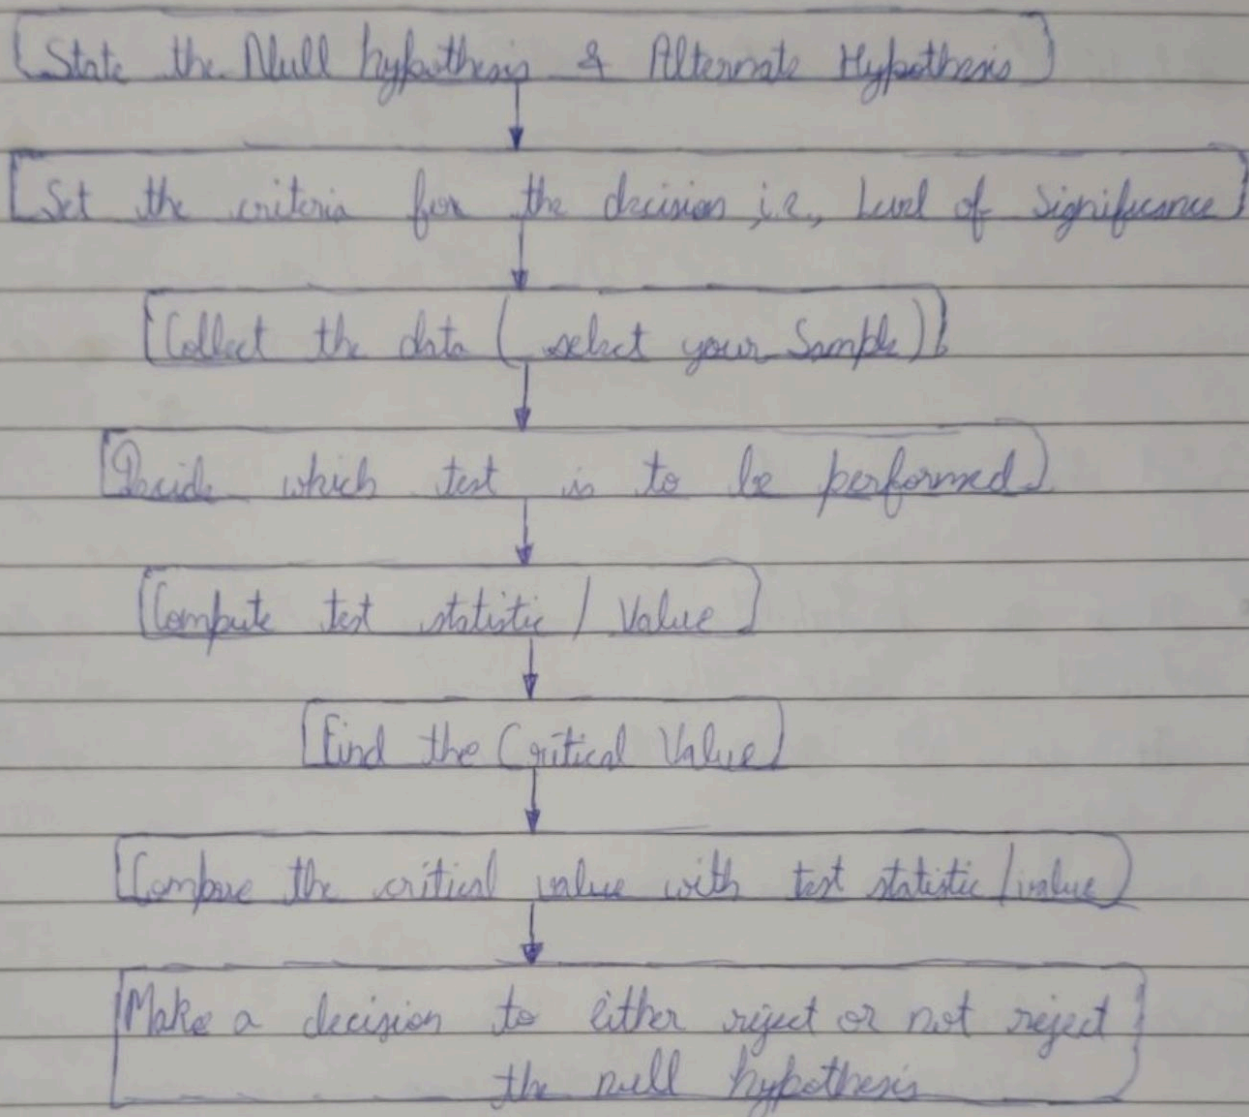 State the Null hypothesis & Alternate Hypothesis
Set the criteria for the decision i.e., Level of Significance
Collect the data ( select your Sample )
Decide which test is to be performed
Compute test statistic / Value
Find the Critical Value
Compare the critical value with test statistic / value
Make a decision to either reject or not reject
the null hypothesis